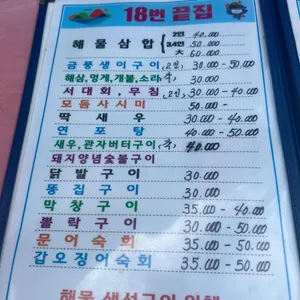 18번 끝집
해물삼합 2인 40.000
3.4인 50.000
大 60.000
금풍생이구이(2인) 30.000-50.000
해삼,멍게,개불,소라 30.000
서대회,무침(2인) 30.000-40.000
모듬사시미 50.000-
딱새우 30.000-40.000
연포탕 40.000-50.000
새우,관자버터구이 40.000
돼지양념숯불구이
닭발구이 30.000
똥집구이 30.000
막창구이 35.000-40.000
볼락구이 30.000-50.000
문어숙회 35.000-50.000
갑오징어숙회 35.000-50.000
해물 생선구이 외